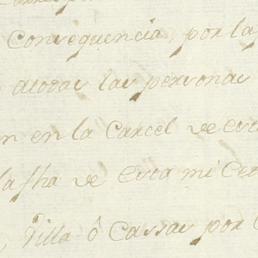 Consequencia, por la
atodas las personas
en la Carcel de
la fha de esta mi
Villa ô Cassas por